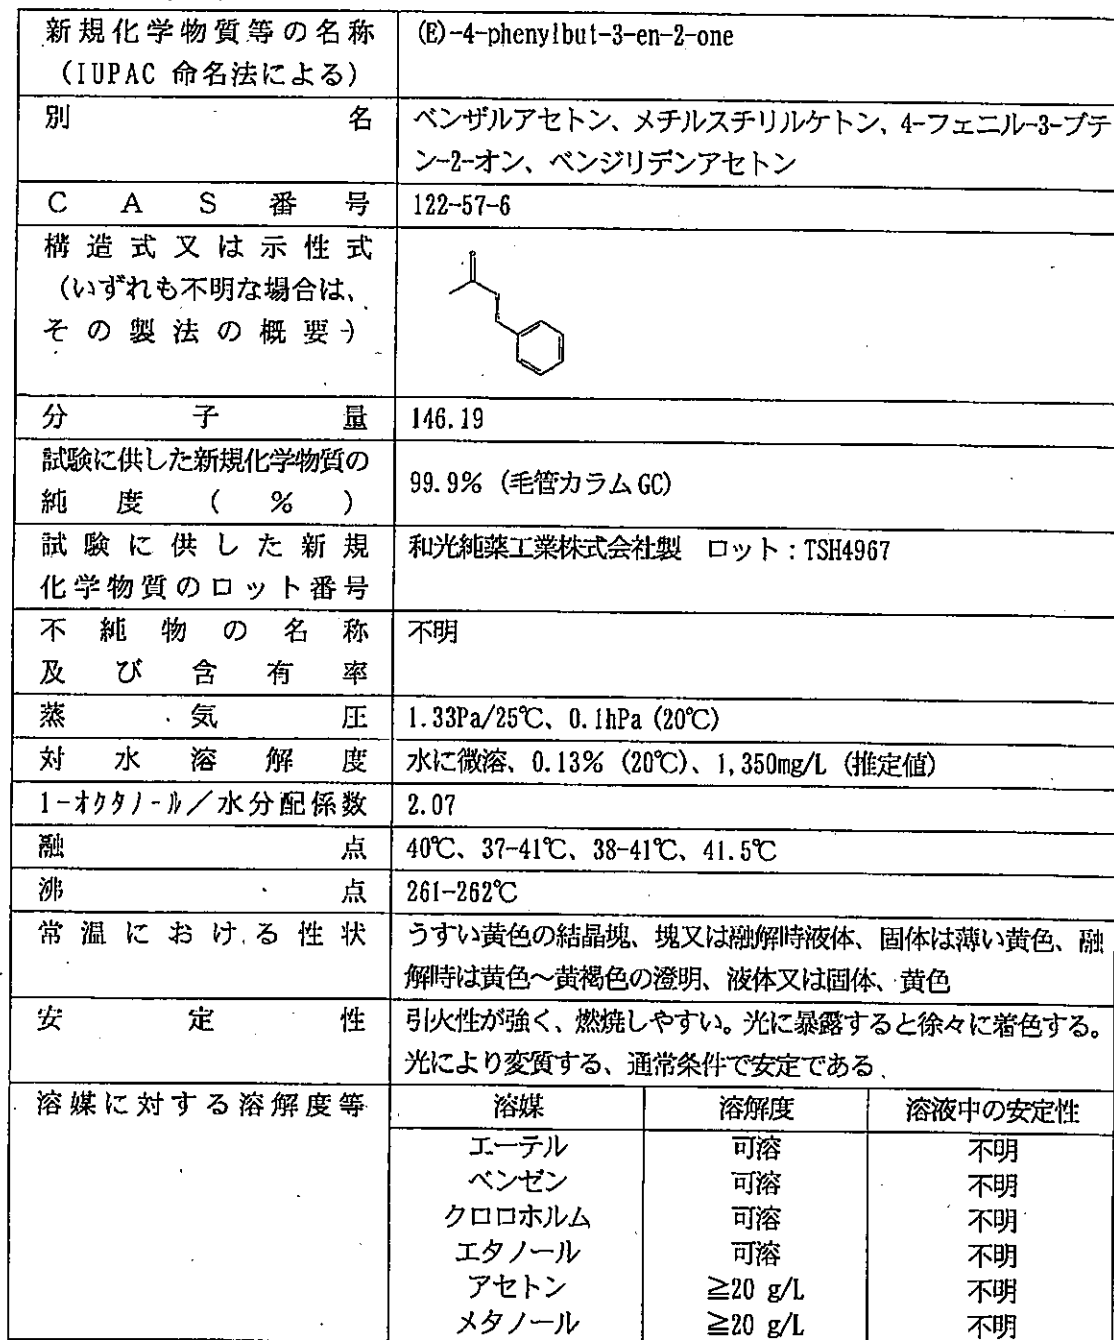 新規化学物質等の名称
(IUPAC 命名法による)
(E)-4-phenylbut-3-en-2-one
別名
ベンザルアセトン、メチルスチリルケトン、4-フェニル-3-ブテ
ン-2-オン、ベンジリデンアセトン
CAS番号
122-57-6
構造式又は示性式
(いずれも不明な場合は、
その製法の概要)
分子量
146.19
試験に供した新規化学物質の
純度(%)
99.9% (毛管カラムGC)
試験に供した新規
化学物質のロット番号
和光純薬工業株式会社製 ロット:TSH4967
不純物の名称
及び含有率
不明
蒸気圧
1.33Pa/25℃、0.1hPa (20℃)
対水溶解度
水に微溶、0.13% (20℃)、1,350mg/L (推定値)
1-オクタノール/水分配係数
2.07
融点
40℃、37-41℃、38-41℃、41.5℃
沸点
261-262℃
常温における性状
うすい黄色の結晶塊、塊又は融解時液体、固体は薄い黄色、融
解時は黄色~黄褐色の澄明、液体又は固体、黄色
安定性
引火性が強く、燃焼しやすい。光に暴露すると徐々に着色する。
光により変質する、通常条件で安定である
溶媒に対する溶解度等
溶媒 溶解度 溶液中の安定性
エーテル 可溶 不明
ベンゼン 可溶 不明
クロロホルム 可溶 不明
エタノール 可溶 不明
アセトン ≧20 g/L 不明
メタノール ≧20 g/L 不明